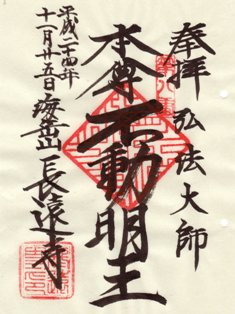 奉拝 弘法大師
本尊 不動明王
平成二十四年
十一月廿五日
海岳山長遠寺